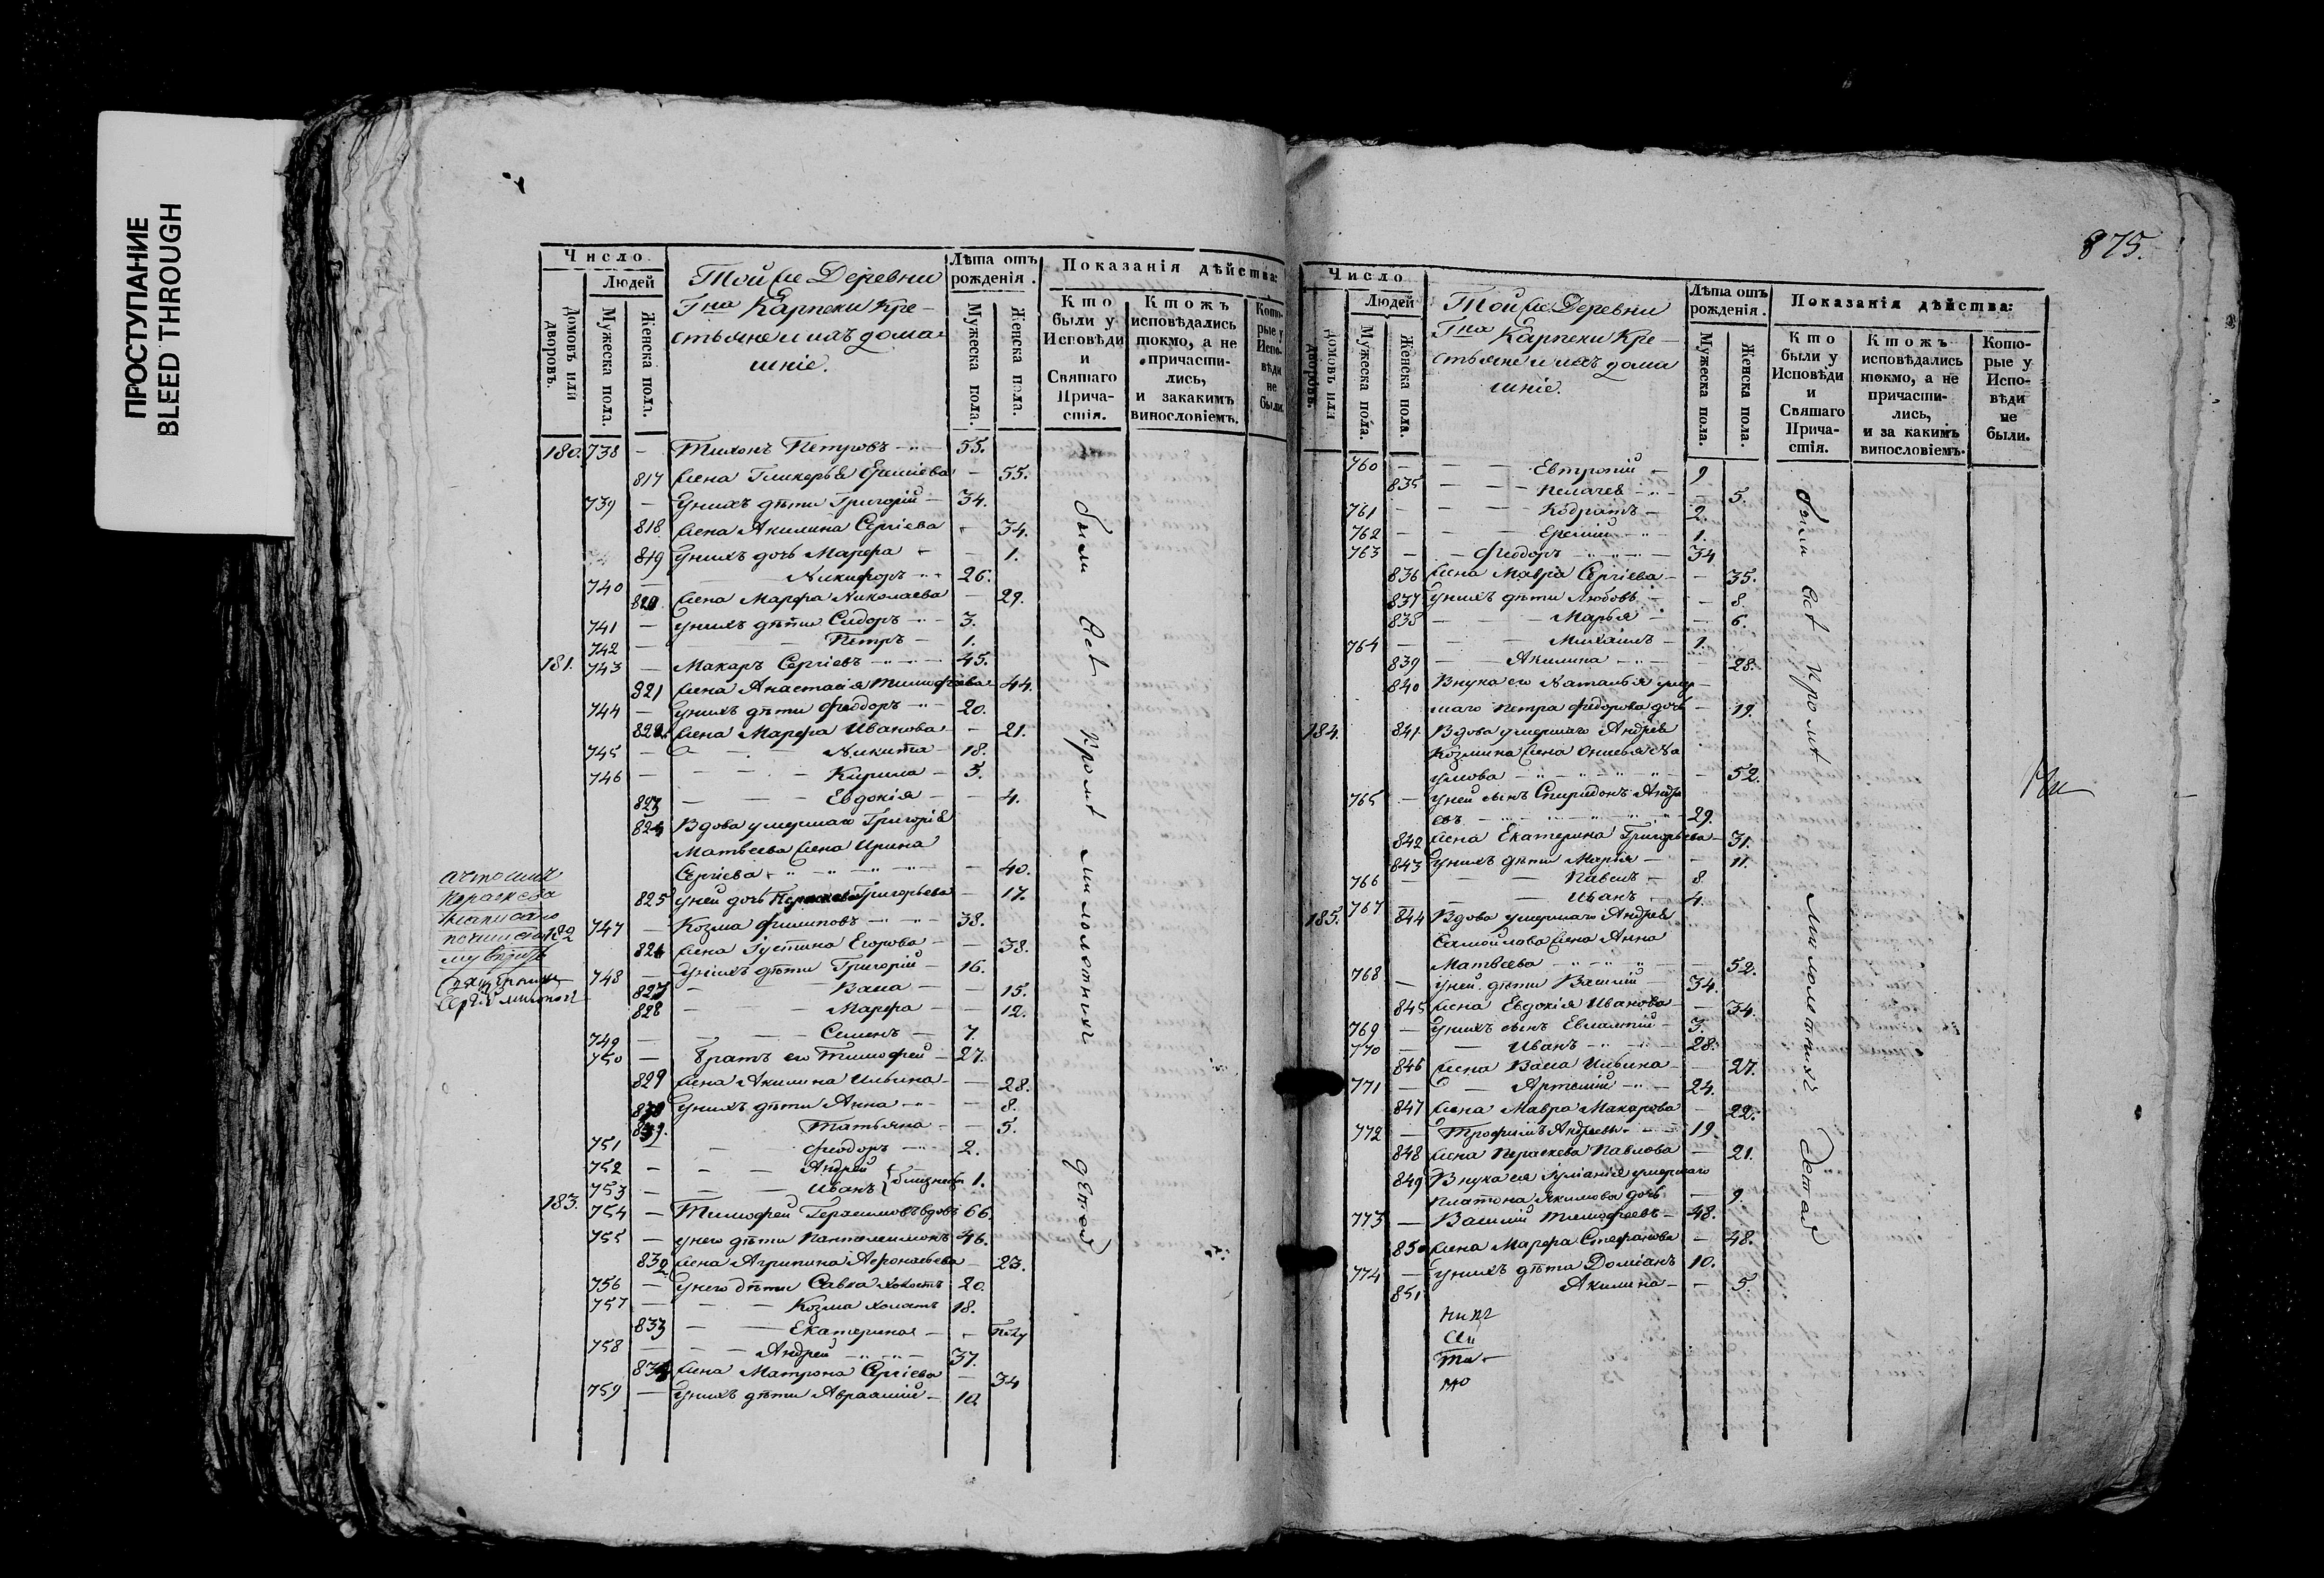 ПРОСТУПАНИЕ
BLEED THROUGH
Число
Людей
Домовъ или дворовъ.
Мужеска пола.
Женска пола.
Той же Деревни
Гна Карпеки Кре-
стьяне и ихъ дома-
шніе.
Лѣта отъ рожденія.
Мужеска пола.
Женска пола.
Показанія дѣйства:
Кто были у Исповѣди и Святаго Причастія.
Ктожъ исповѣдались токмо, а не причастились, и закакимъ винословіемъ.
Которые у Исповѣди не были.
180. 738 — Тихонъ Петровъ — 55.
817 жена Гликерья — 55.
739 — У нихъ дѣти Григорій — 34.
818 жена Акилина Сергіева — 34.
819 У нихъ дочь Марфа — 1.
740 — Никифоръ — 26.
820 жена Марфа Николаева — 29.
741 — У нихъ дѣти Сидоръ — 3.
742 — Петръ — 1.
181. 743 — Макаръ Сергіевъ — 45.
821 жена Анастасія Тимофѣева 44.
744 — У нихъ дѣти Феодоръ — 20.
822 жена Марфа Иванова — 21.
745 — Никита — 18.
746 — Кирила — 5.
823 — Евдокія — 4.
824 Вдова умершаго Григорія
Матвѣева жена Ирина
Сергіева — 40.
825 У ней дочь Григорьева — 17.
182 747 — Козма Филиповъ — 38.
826 жена Іустина Егорова — 38.
748 — У нихъ дѣти Григорій — 16.
827 — Васа — 15.
828 — Марфа — 12.
749 — Семенъ — 7.
750 — братъ его Тимофей — 27.
829 жена Акилина Ильина — 28.
830 У нихъ дѣти Анна — 8.
Татьяна — 5.
751 — Феодоръ — 2.
752 — Андрей
753 — Иванъ близнецы 1.
183. 754 — Тимофей Герасимовъ вдовъ 66.
755 — У него дѣти Пантелеимонъ 46.
832 жена Агрипина Афонасьева — 23.
756 — У него дѣти Савва холостъ 20.
757 — Козма холостъ 18.
833 — Екатерина —
758 — Андрей — 37.
834 жена Матрона Сергіева — 34
759 — У нихъ дѣти Авраамій — 10.
были всѣ кромѣ малолѣтнихъ дѣтей
875.
Число
Людей
Домовъ или дворовъ.
Мужеска пола.
Женска пола.
Той же Деревни
Гна Карпеки Кре-
стьяне и ихъ дома
шніе.
Лѣта отъ рожденія.
Мужеска пола.
Женска пола.
Показанія дѣйства:
Кто были у Исповѣди и Святаго Причастія.
Ктожъ исповѣдались токмо, а не причастились, и за какимъ винословіемъ.
Которые у Исповѣди не были.
760 — Евтропій — 9
835 — Пелагея — 5.
761 — Кодратъ — 2.
762 — — 1.
763 — Феодоръ — 34
836 жена Мавра Сергіева — 35.
837 У нихъ дѣти Любовь — 8.
838 — Марья — 6.
764 — Михаилъ — 1.
839 — Акилина — 28.
840 Внука его Наталья умер-
шаго Петра Федорова дочь — 19.
184. 841 Вдова умершаго Андрея
Козмина жена
— 52.
765 — У ней сынъ Спиридонъ Андре
евъ — 29.
842 жена Екатерина Григорьева — 31.
843 У нихъ дѣти Марія — 11.
766 — Павелъ — 8.
767 — Иванъ — 4.
185. 844 Вдова умершаго Андрея
Самойлова жена Анна
Матвѣева — 52.
768 — У ней дѣти Василій — 34.
845 жена Евдокія Иванова — 34.
769 — У нихъ сынъ Евлампій — 3.
770 — Иванъ — 28.
846 жена Васа Ильина — 27.
771 — Артемій — 24.
847 жена Мавра Макарова — 22.
772 — Трофимъ Андреевъ — 19.
848 жена Параскева Павлова — 21.
849 Внука ея умершаго
Платона Якимова дочь — 9.
773 — Василій Тимофѣевъ — 48.
850 жена Марфа Стефанова — 48.
774 — У нихъ дѣти Доміанъ 10.
851 Акилина — 5.
были всѣ кромѣ малолѣтнихъ дѣтей